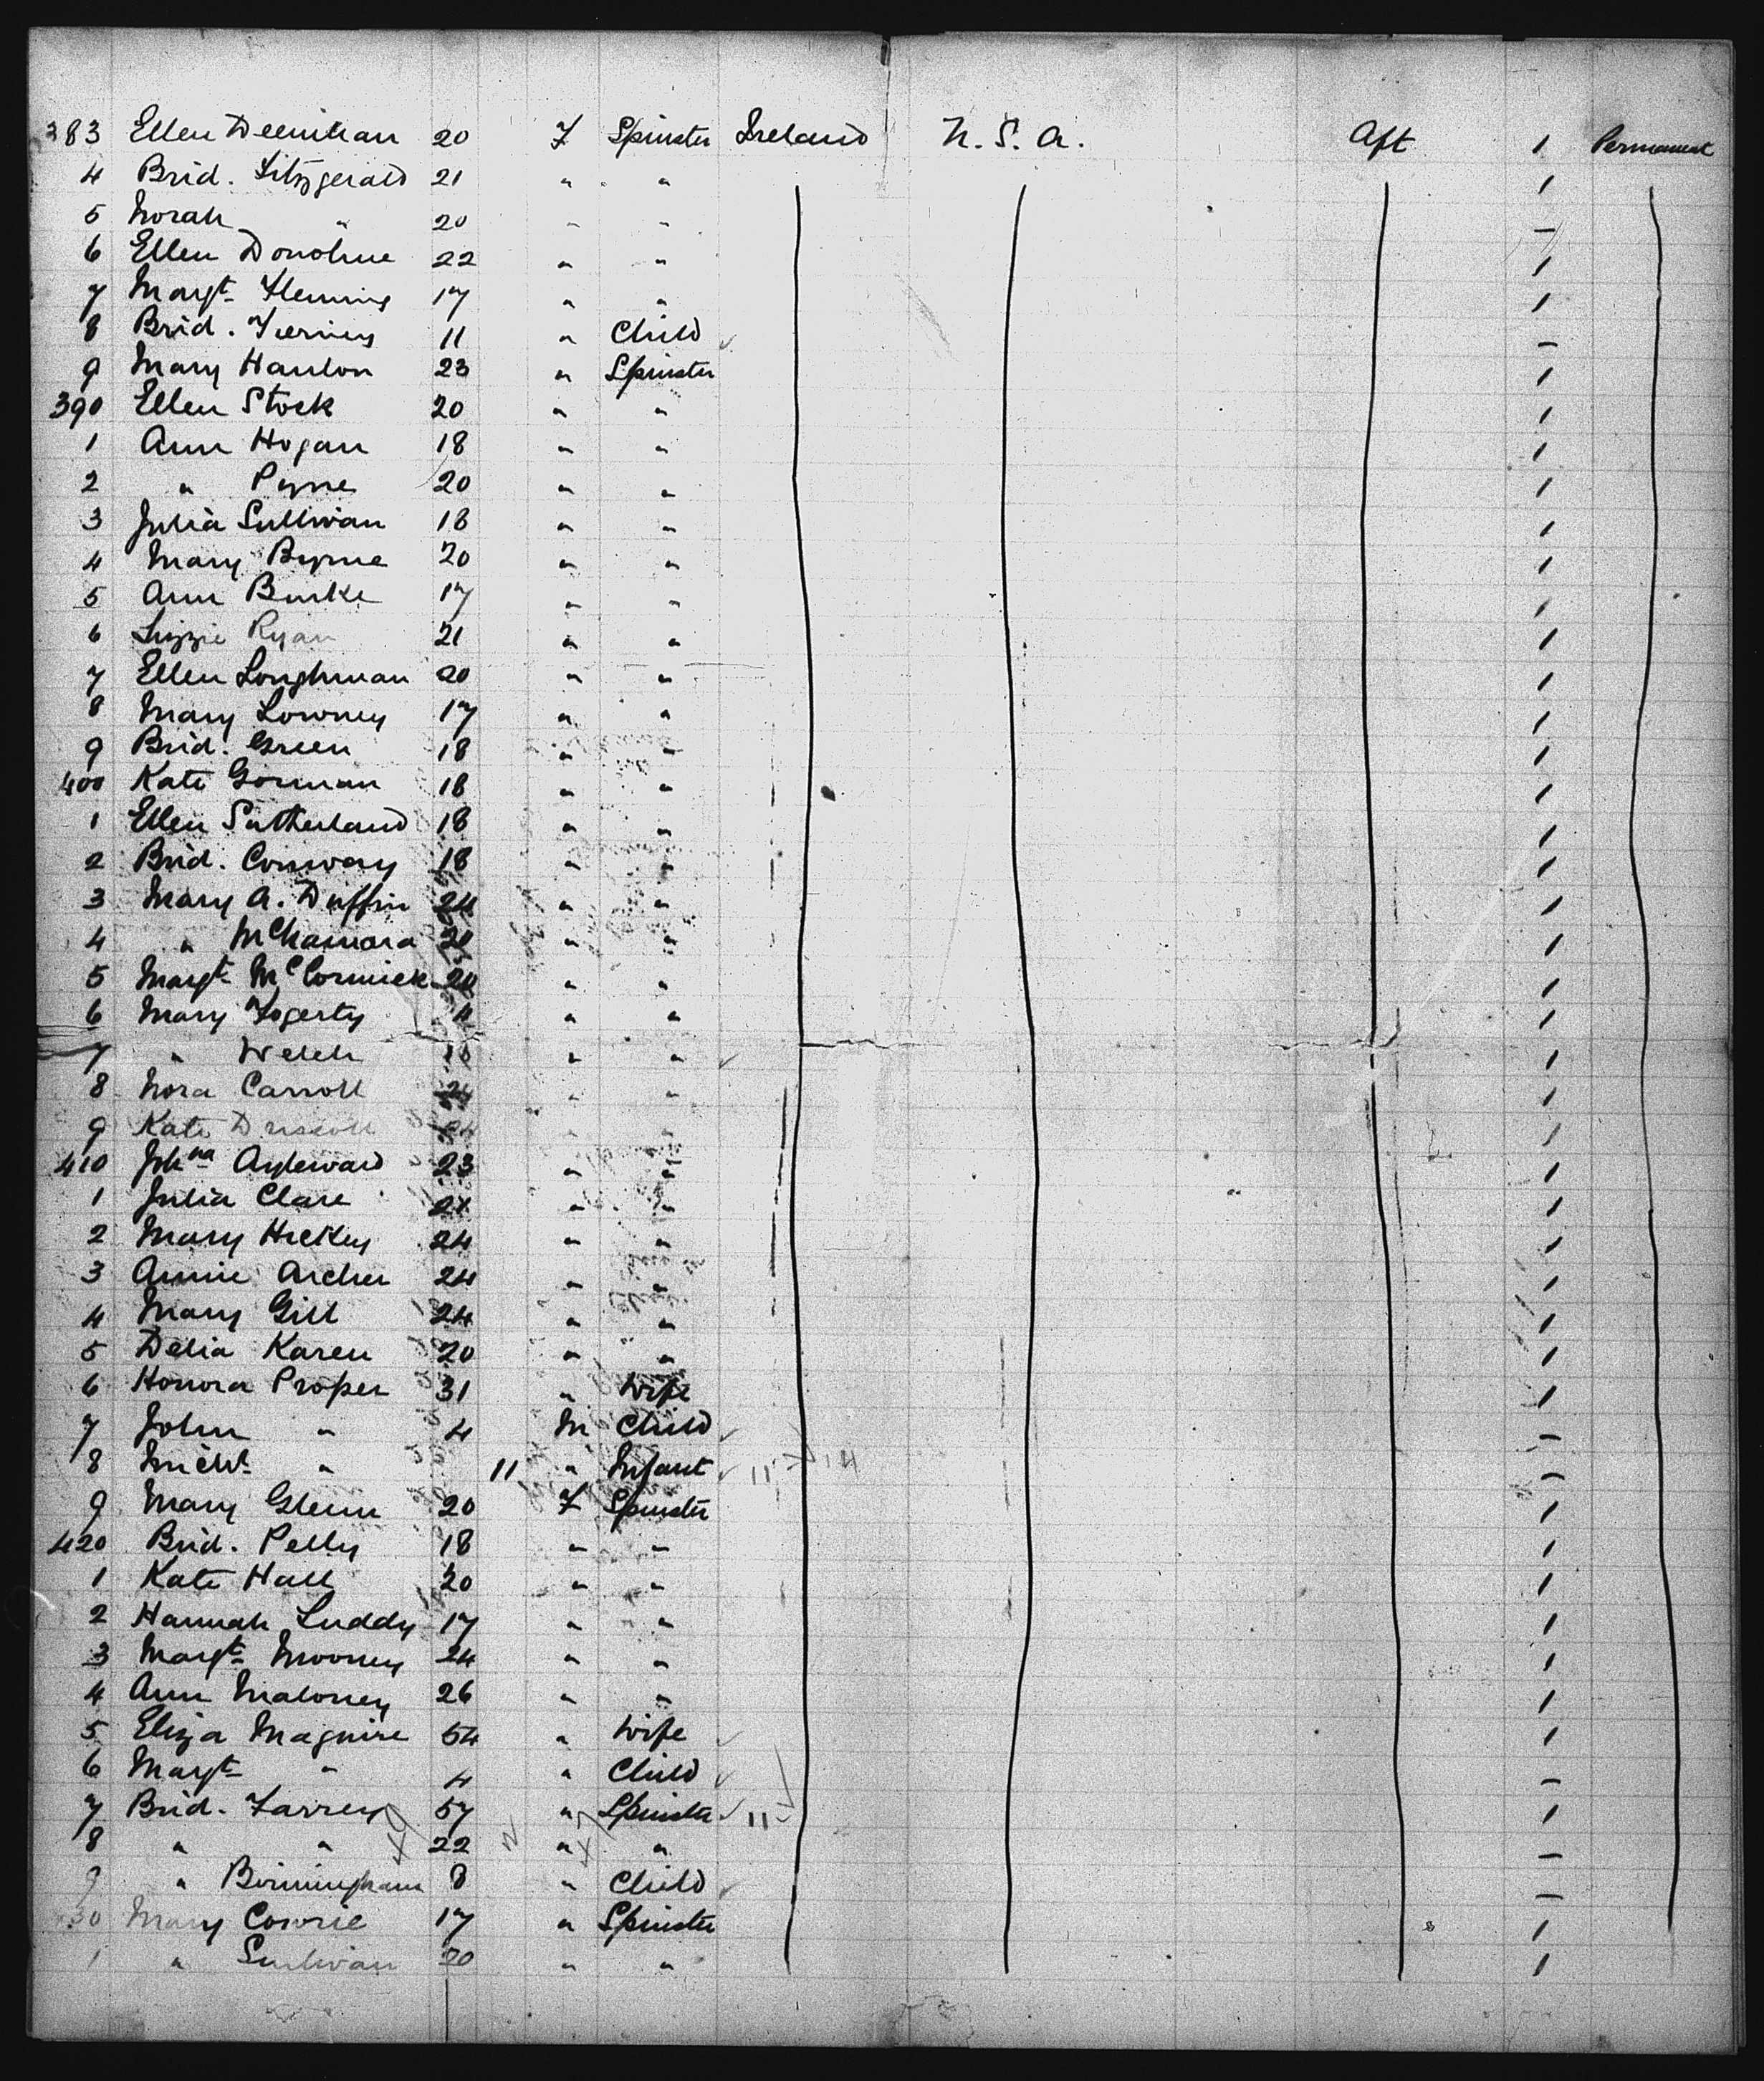 383 Ellen Deenihan 20 F Spinster Ireland U. S. A. Aft 1 Permanent
4 Brid. Fitzgerald 21 " " 1
5 Norah " 20 " " –
6 Ellen Donohue 22 " " 1
7 Margt Fleming 17 " " 1
8 Brid. 11 " Child –
9 Mary Hanlon 23 " Spinster 1
390 Ellen Stock 20 " " 1
1 Ann Hogan 18 " " 1
2 " Pyne 20 " " 1
3 Julia Sullivan 18 " " 1
4 Mary Byrne 20 " " 1
5 Ann Burke 17 " " 1
6 Lizzie Ryan 21 " " 1
7 Ellen Loughman 20 " " 1
8 Mary Lowney 17 " " 1
9 Brid. Green 18 " " 1
400 Kate Gorman 18 " " 1
1 Ellen Sutherland 18 " " 1
2 Brid. Conway 18 " " 1
3 Mary A. Duffin 24 " " 1
4 " McNamara 20 " " 1
5 Margt McCormick 20 " " 1
6 Mary Fogerty " " 1
7 " Welch " " 1
8 Nora Carroll 24 " " 1
9 Kate Driscoll 24 " " 1
410 Johna Aylward 23 " " 1
1 Julia Clare " " 1
2 Mary Hickey 24 " " 1
3 Annie Archer 24 " " 1
4 Mary Gill 24 " " 1
5 Delia Karen 20 " " 1
6 Honora Proper 31 " Wife 1
7 John " 4 M Child –
8 Michl " 11 " Infant 11 –
9 Mary Glenn 20 F Spinster 1
420 Brid. Pelly 18 " " 1
1 Kate Hall 20 " " 1
2 Hannah Luddy 17 " " 1
3 Margt Mooney 24 " " 1
4 Ann Maloney 26 " " 1
5 Eliza Maguire 54 " Wife 1
6 Margt " 4 " Child –
7 Brid. Farrey 57 " Spinster 11 1
8 " " 22 " " –
9 " Birmingham 8 " Child –
30 Mary Cowrie 17 " Spinster 1
1 " Sullivan 20 " " 1